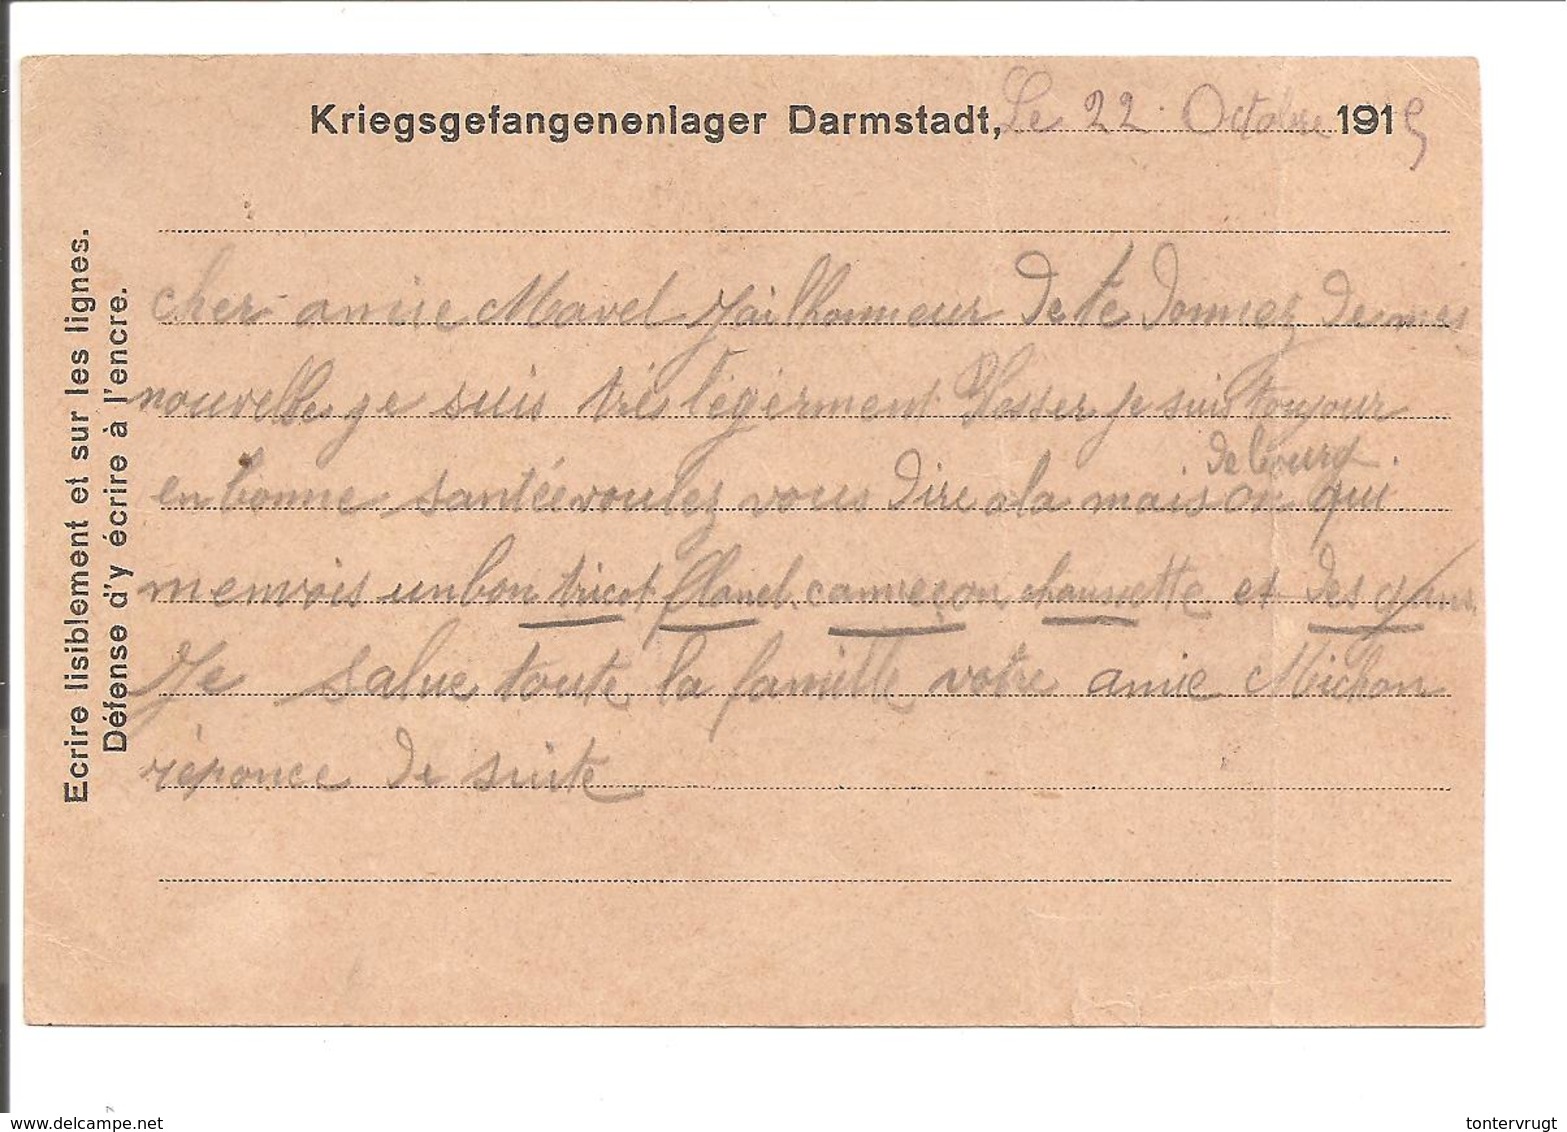 Kriegsgefangenenlager Darmstadt, Le 22 Octobre 1915
Ecrire lisiblement et sur les lignes.
Défense d'y écrire à l'encre.
cher amie Mavel J'ai lhonneur de te donnez de mes
nouvelles je suis très légerment blesser je suis toujour
de bourg
en bonne santée voulez vous dire a la maison qui
menvois un bon tricot flanel canneçon chaussette et des gans
Je salue toute la famille votre amie Michon
réponce de suite
www.delcampe.net
tontervrugt